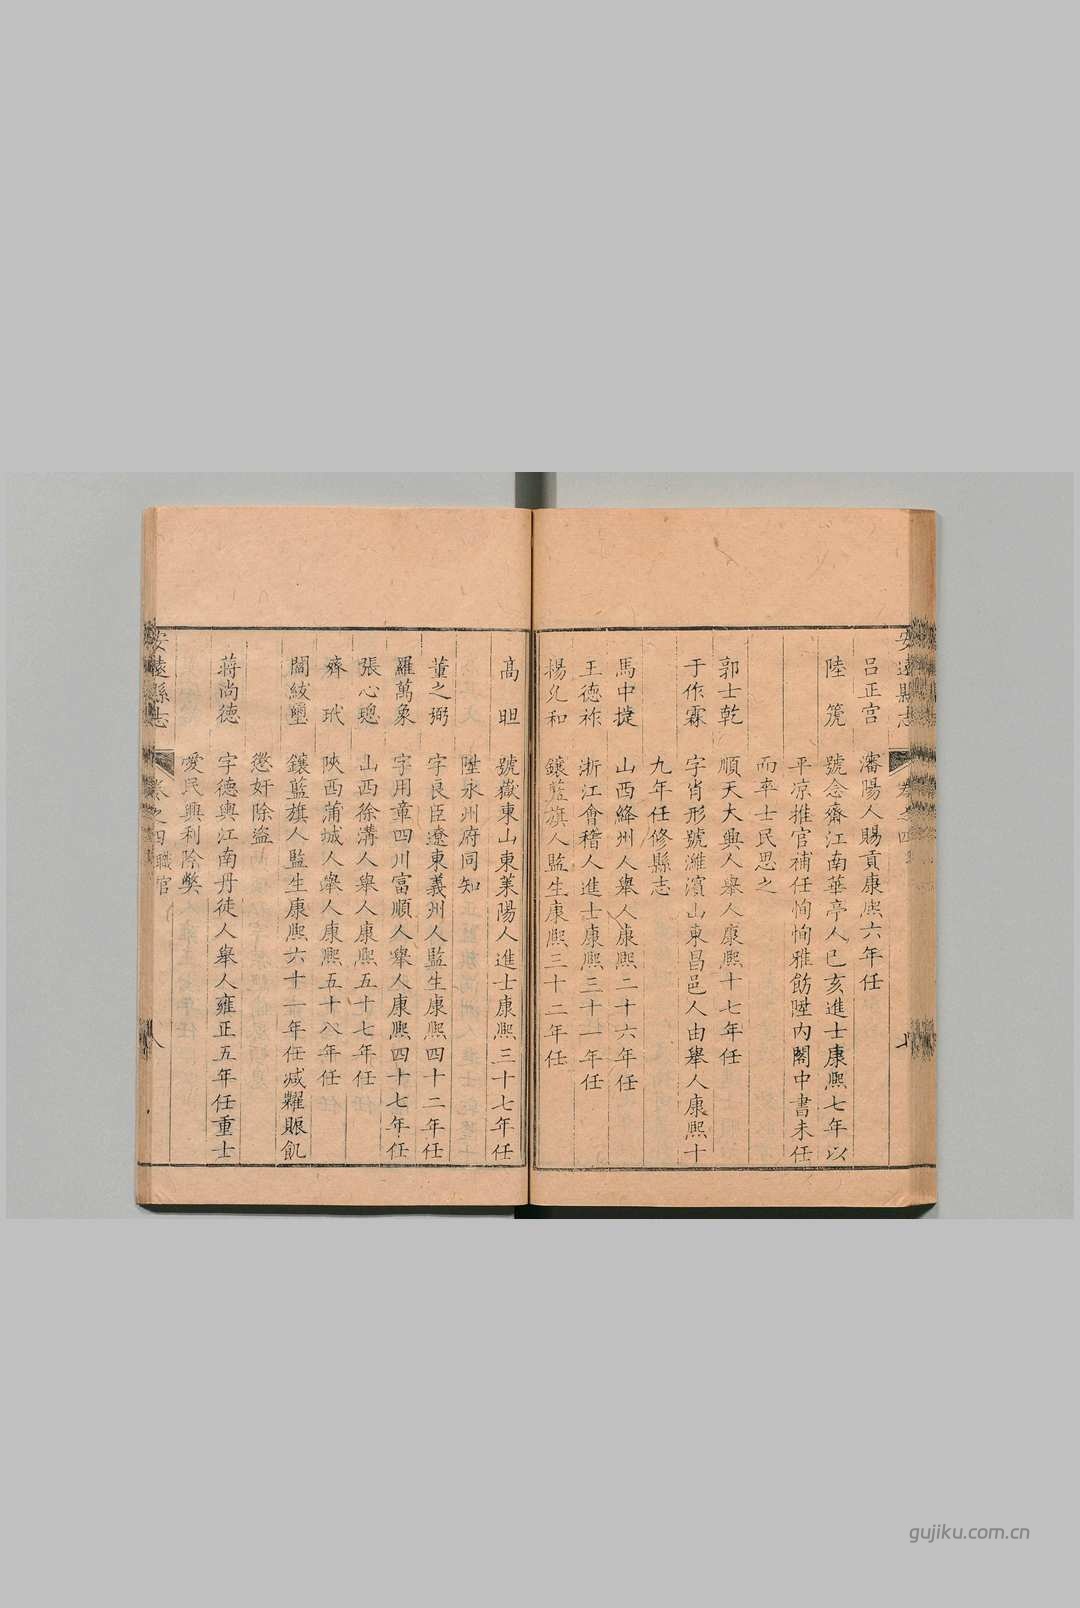 安遠縣志
呂正宮 瀋陽人賜貢康熙六年任
陸 筦 號念齋江南華亭人已亥進士康熙七年以
平凉推官補任恂恂雅飭陞內閣中書未任
而卒士民思之
郭士乾 順天大興人舉人康熙十七年任
于作霖 字肖形號濰濱山東昌邑人由舉人康熙十
九年任修縣志
馬中㨗 山西絳州人舉人康熙二十六年任
王德祚 浙江會稽人進士康熙三十一年任
楊允和 鑲藍旗人監生康熙三十二年任
高 昍 號嶽東山東萊陽人進士康熙三十七年任
陞永州府同知
董之弼 字良臣遼東義州人監生康熙四十二年任
羅萬象 字用章四川富順人舉人康熙四十七年任
張心璁 山西徐溝人舉人康熙五十七年任
齊 玳 陝西蒲城人舉人康熙五十八年任
閻紱璽 鑲藍旗人監生康熙六十一年任减糶賑飢
懲奸除盜
蔣尚德 字德輿江南丹徒人舉人雍正五年任重士
愛民興利除弊
安遠縣志 卷之四職官 八
gujiku.com.cn